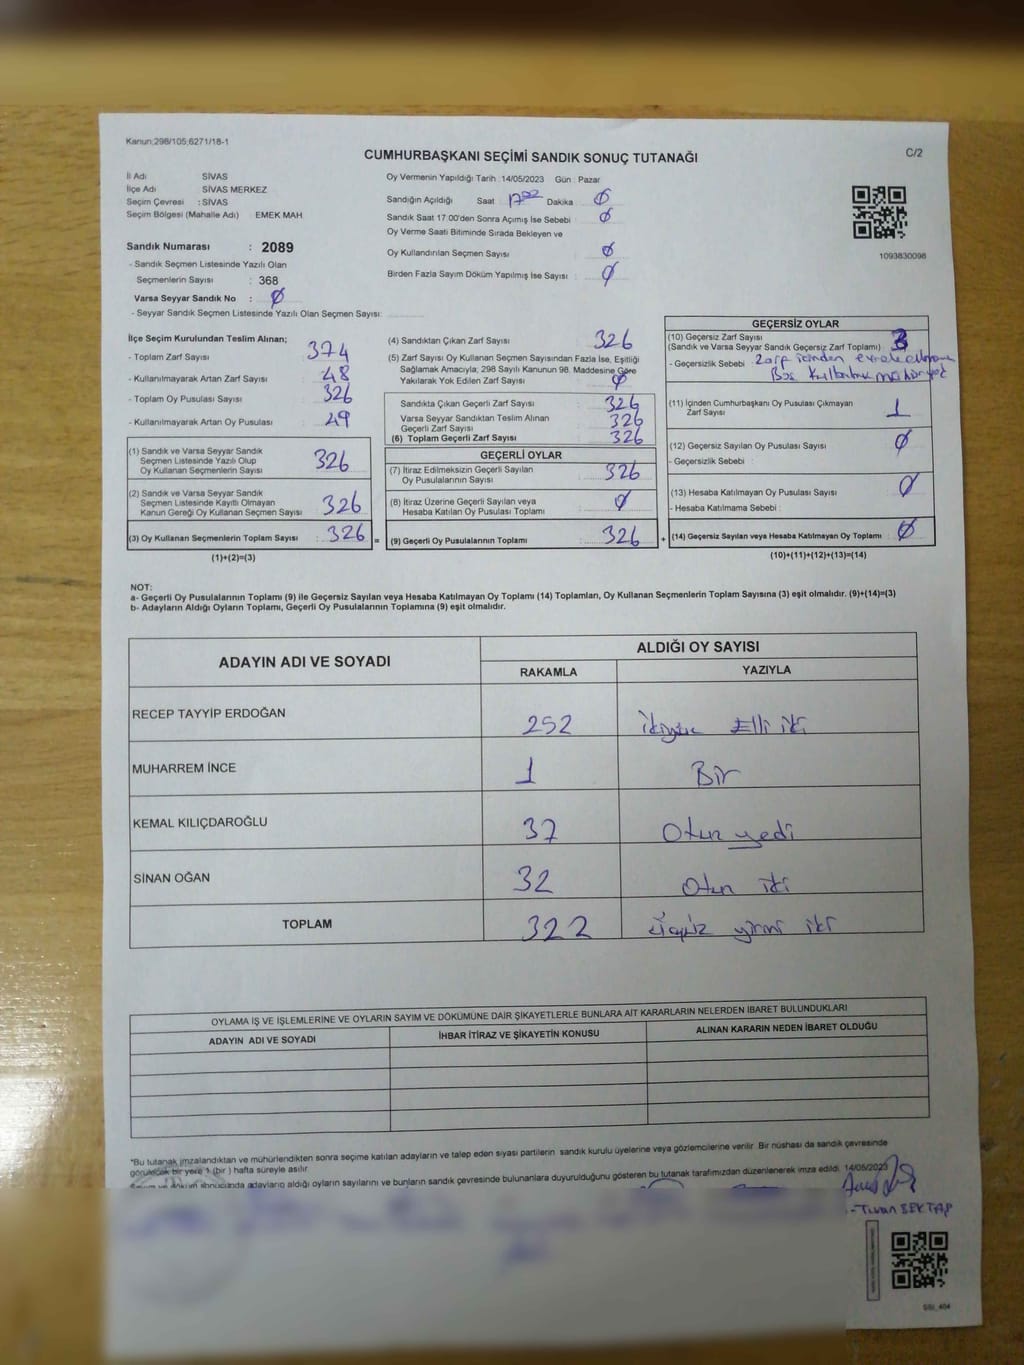 Kanun;298/105;6271/18-1
CUMHURBAŞKANI SEÇİMİ SANDIK SONUÇ TUTANAĞI
C/2
İl Adı SİVAS
İlçe Adı SİVAS MERKEZ
Seçim Çevresi : SİVAS
Seçim Bölgesi (Mahalle Adı) EMEK MAH.
Sandık Numarası : 2089
- Sandık Seçmen Listesinde Yazılı Olan
Seçmenlerin Sayısı : 368
Varsa Seyyar Sandık No : 0
- Seyyar Sandık Seçmen Listesinde Yazılı Olan Seçmen Sayısı:
Oy Vermenin Yapıldığı Tarih : 14/05/2023 Gün : Pazar
Sandığın Açıldığı Saat 17 Dakika 0
Sandık Saat 17.00'den Sonra Açılmış İse Sebebi : 0
Oy Verme Saati Bitiminde Sırada Bekleyen ve
Oy Kullandırılan Seçmen Sayısı : 0
Birden Fazla Sayım Döküm Yapılmış İse Sayısı : 0
1093830098
İlçe Seçim Kurulundan Teslim Alınan;
- Toplam Zarf Sayısı : 374
- Kullanılmayarak Artan Zarf Sayısı : 48
- Toplam Oy Pusulası Sayısı : 326
- Kullanılmayarak Artan Oy Pusulası : 49
(1) Sandık ve Varsa Seyyar Sandık
Seçmen Listesinde Yazılı Olup
Oy Kullanan Seçmenlerin Sayısı : 326
(2) Sandık ve Varsa Seyyar Sandık
Seçmen Listesinde Kayıtlı Olmayan
Kanun Gereği Oy Kullanan Seçmen Sayısı : 326
(3) Oy Kullanan Seçmenlerin Toplam Sayısı : 326 =
(1)+(2)=(3)
(4) Sandıktan Çıkan Zarf Sayısı : 326
(5) Zarf Sayısı Oy Kullanan Seçmen Sayısından Fazla İse, Eşitliği
Sağlamak Amacıyla; 298 Sayılı Kanunun 98. Maddesine Göre
Yakılarak Yok Edilen Zarf Sayısı : 0
Sandıkta Çıkan Geçerli Zarf Sayısı : 326
Varsa Seyyar Sandıktan Teslim Alınan
Geçerli Zarf Sayısı : 326
(6) Toplam Geçerli Zarf Sayısı : 326
GEÇERLİ OYLAR
(7) İtiraz Edilmeksizin Geçerli Sayılan
Oy Pusulalarının Sayısı : 326
(8) İtiraz Üzerine Geçerli Sayılan veya
Hesaba Katılan Oy Pusulası Toplamı : 0
(9) Geçerli Oy Pusulalarının Toplamı : 326 +
GEÇERSİZ OYLAR
(10) Geçersiz Zarf Sayısı
(Sandık ve Varsa Seyyar Sandık Geçersiz Zarf Toplamı) : 3
- Geçersizlik Sebebi : Zarf içinden
Boş
(11) İçinden Cumhurbaşkanı Oy Pusulası Çıkmayan
Zarf Sayısı : 1
(12) Geçersiz Sayılan Oy Pusulası Sayısı : 0
- Geçersizlik Sebebi :
(13) Hesaba Katılmayan Oy Pusulası Sayısı : 0
- Hesaba Katılmama Sebebi :
(14) Geçersiz Sayılan veya Hesaba Katılmayan Oy Toplamı : 0
(10)+(11)+(12)+(13)=(14)
NOT:
a- Geçerli Oy Pusulalarının Toplamı (9) ile Geçersiz Sayılan veya Hesaba Katılmayan Oy Toplamı (14) Toplamları, Oy Kullanan Seçmenlerin Toplam Sayısına (3) eşit olmalıdır. (9)+(14)=(3)
b- Adayların Aldığı Oyların Toplamı, Geçerli Oy Pusulalarının Toplamına (9) eşit olmalıdır.
ADAYIN ADI VE SOYADI
ALDIĞI OY SAYISI
RAKAMLA YAZIYLA
RECEP TAYYİP ERDOĞAN 252 ikiyüz Elli iki
MUHARREM İNCE 1 Bir
KEMAL KILIÇDAROĞLU 37 Otuz yedi
SİNAN OĞAN 32 Otuz iki
TOPLAM 322 üçyüz yirmi iki
OYLAMA İŞ VE İŞLEMLERİNE VE OYLARIN SAYIM VE DÖKÜMÜNE DAİR ŞİKAYETLERLE BUNLARA AİT KARARLARIN NELERDEN İBARET BULUNDUKLARI
ADAYIN ADI VE SOYADI İHBAR İTİRAZ VE ŞİKAYETİN KONUSU ALINAN KARARIN NEDEN İBARET OLDUĞU
*Bu tutanak imzalandıktan ve mühürlendikten sonra seçime katılan adayların ve talep eden siyasi partilerin sandık kurulu üyelerine veya gözlemcilerine verilir. Bir nüshası da sandık çevresinde
görülecek bir yere 1 (bir ) hafta süreyle asılır.
Sayım ve döküm sonucunda adayların aldığı oyların sayılarını ve bunların sandık çevresinde bulunanlara duyurulduğunu gösteren bu tutanak tarafımızdan düzenlenerek imza edildi. 14/05/2023
SSI_404